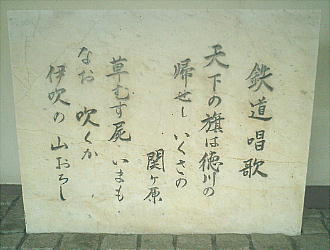 鉄道唱歌
天下の旗は徳川の
帰せしいくさの
関ヶ原
草むす屍いまも
なお吹くか
伊吹の山おろし